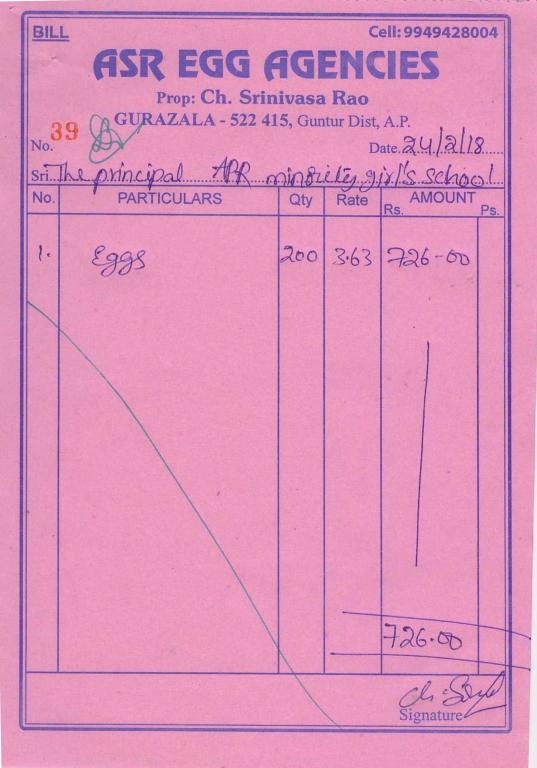 BILL Cell: 9949428004
ASR EGG AGENCIES
Prop: Ch. Srinivasa Rao
GURAZALA - 522 415, Guntur Dist, A.P.
No. 39 Date. 24/2/18
Sri. The principal APR minority girl's school
No. PARTICULARS Qty Rate AMOUNT
Rs. Ps.
1. Eggs 200 3.63 726-00
726.00
Signature